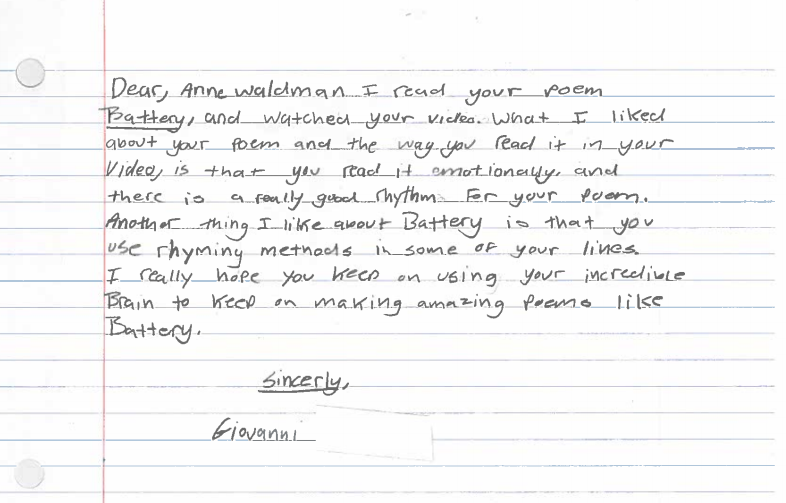 Dear, Anne waldman I read your poem
Battery, and watched your video. What I liked
about your Poem and the way you read it in your
Video, is that you read it emotionally, and
there is a really good rhythm For your Poem.
Another thing I like about Battery is that you
use rhyming methods in some of your lines.
I really hope you keep on using your incredible
Brain to keep on making amazing Poems like
Battery.
sincerly,
Giovanni